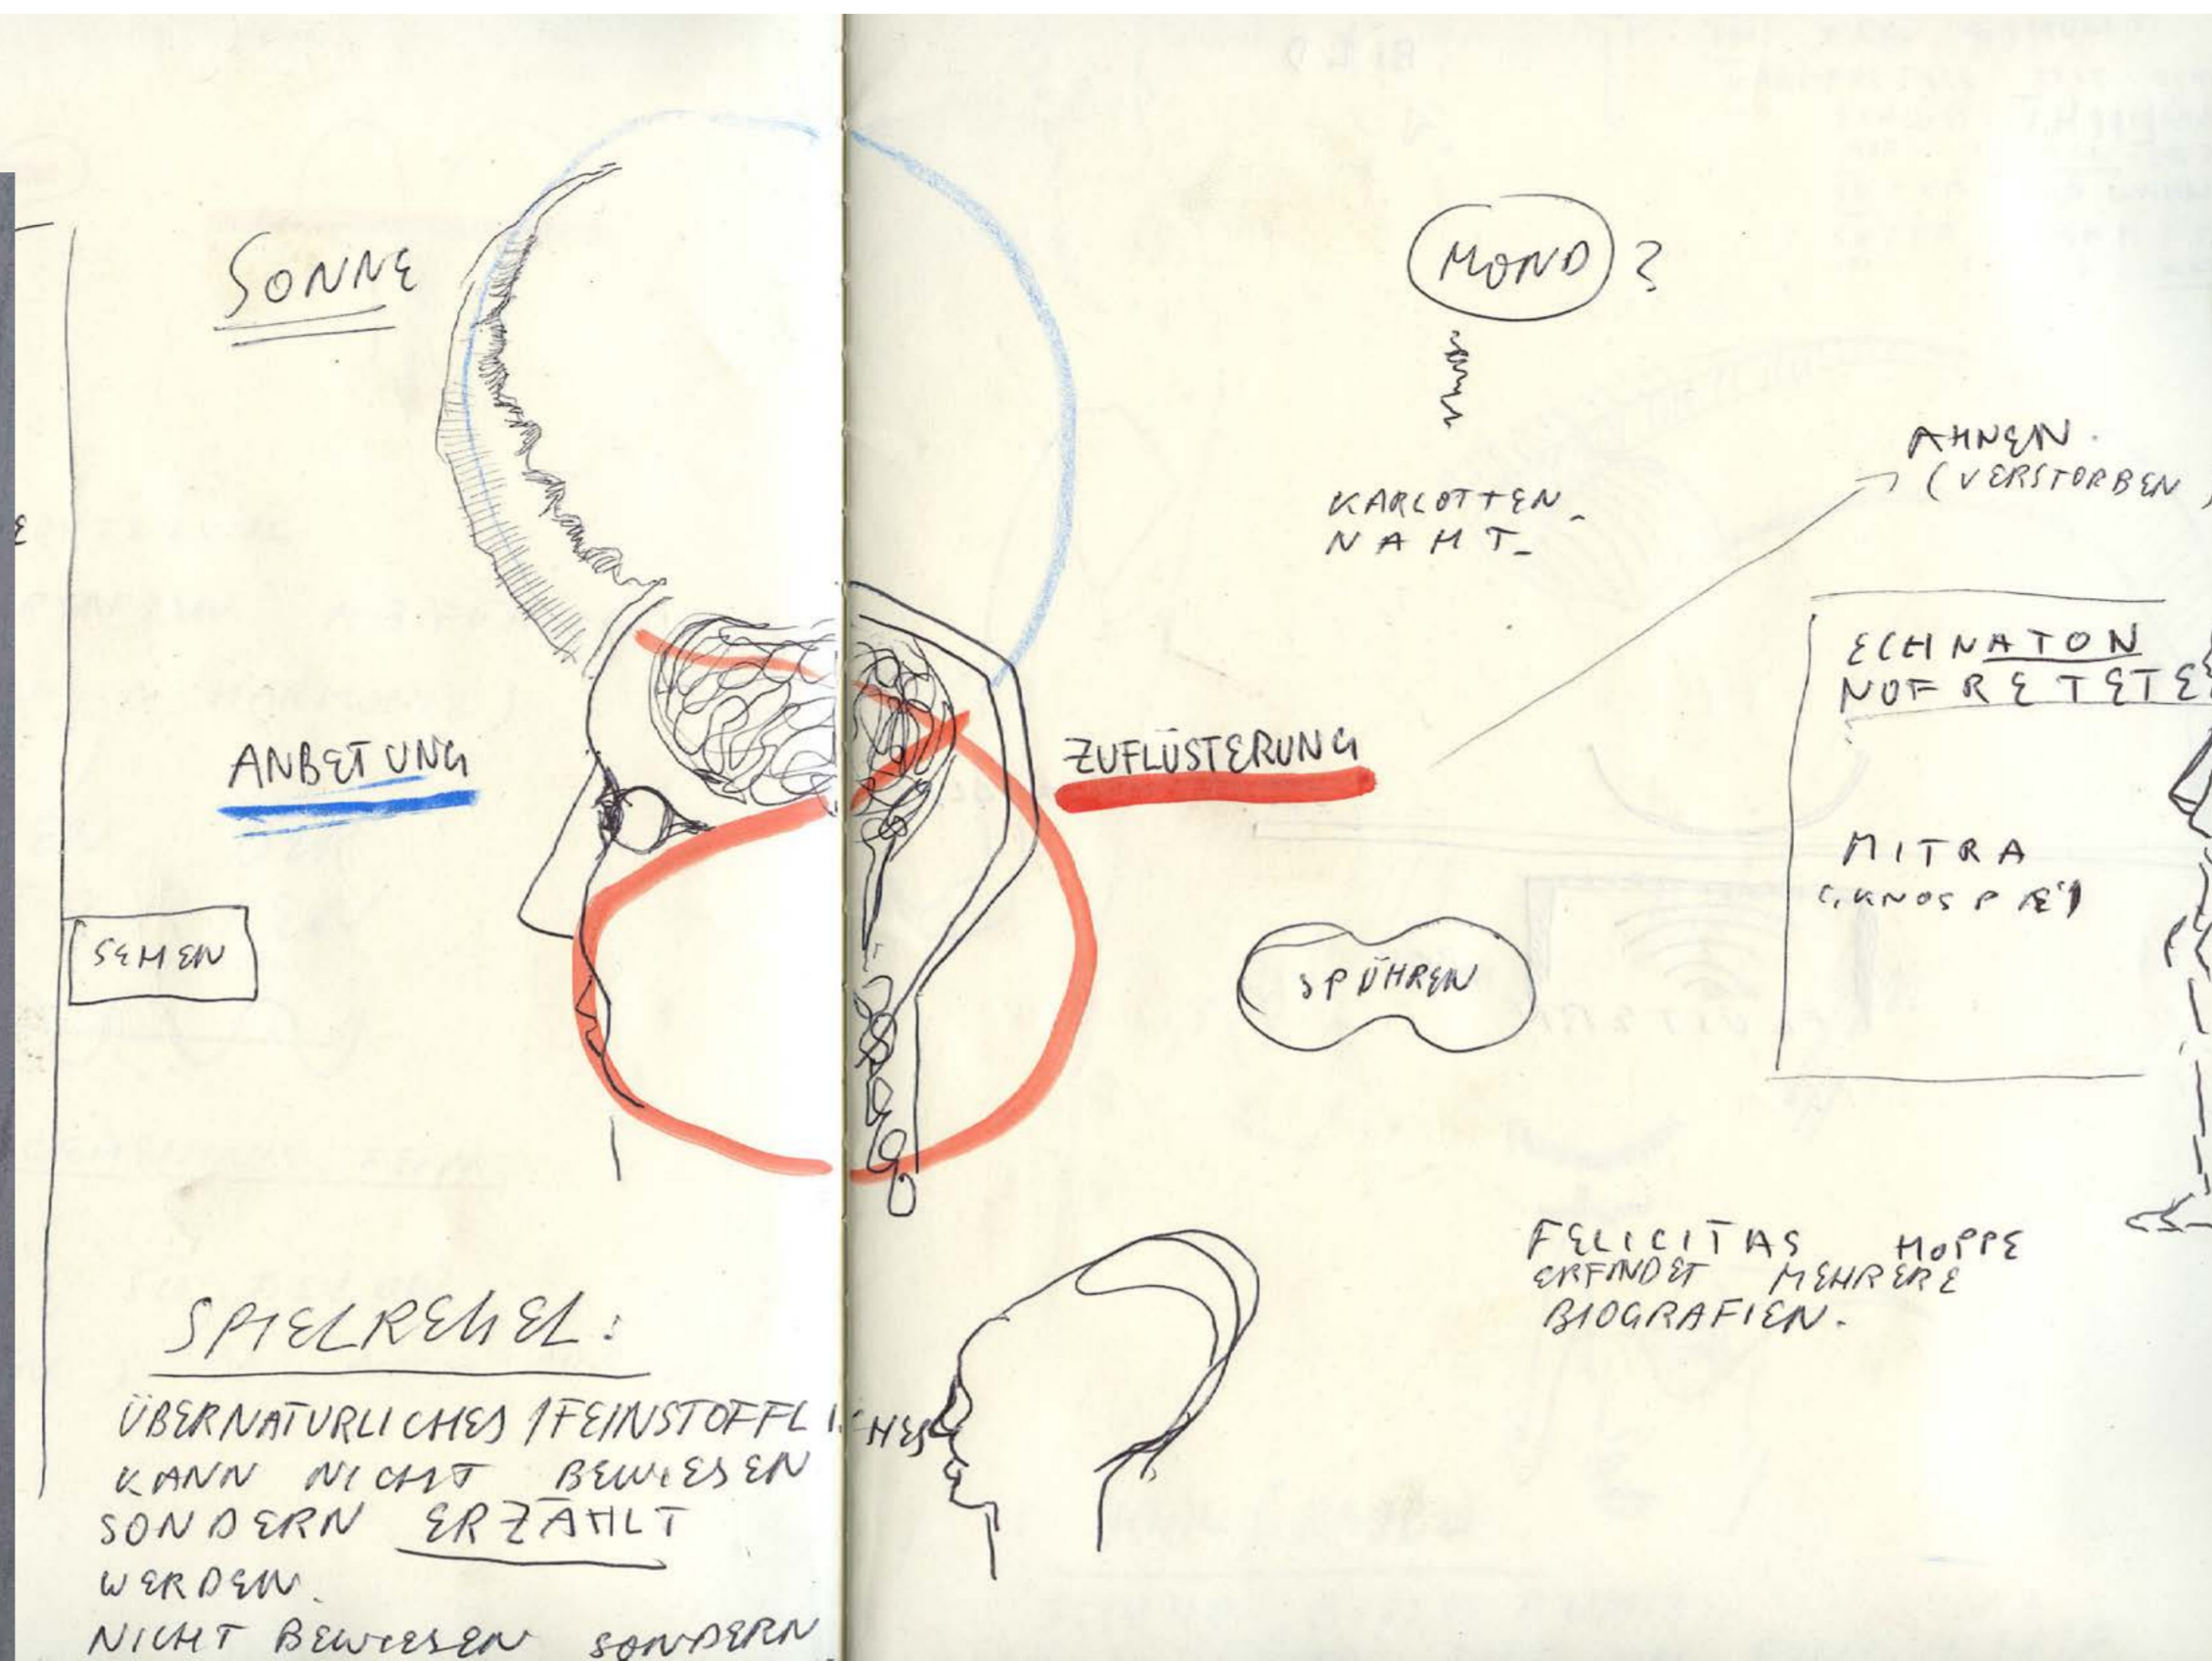 SONNE
ANBETUNG
SEHEN
SPIELREGEL:
ÜBERNATURLICHES / FEINSTOFFLICHES
KANN NICHT BEWIESEN
SONDERN ERZÄHLT
WERDEN.
NICHT BEWIESEN SONDERN
MOND?
KARLOTTEN_
NAHT_
AHNEN.
(VERSTORBEN)
ZUFLÜSTERUNG
ECHNATON
NOFRETETE
MITRA
SPÜHREN
FELICITAS HOPPE
ERFINDET MEHRERE
BIOGRAFIEN.